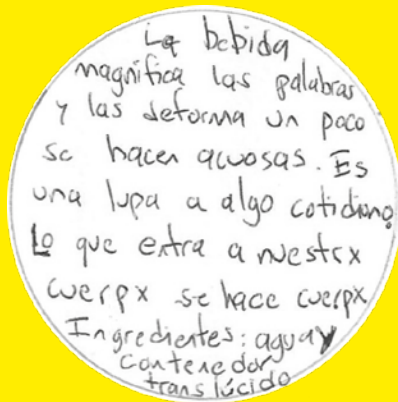 La bebida
magnifica las palabras
y las deforma un poco
se hacen acuosas. Es
una lupa a algo cotidiano
Lo que entra a nuestrx
cuerpx se hace cuerpx
Ingredientes: agua y
contenedor
translúcido